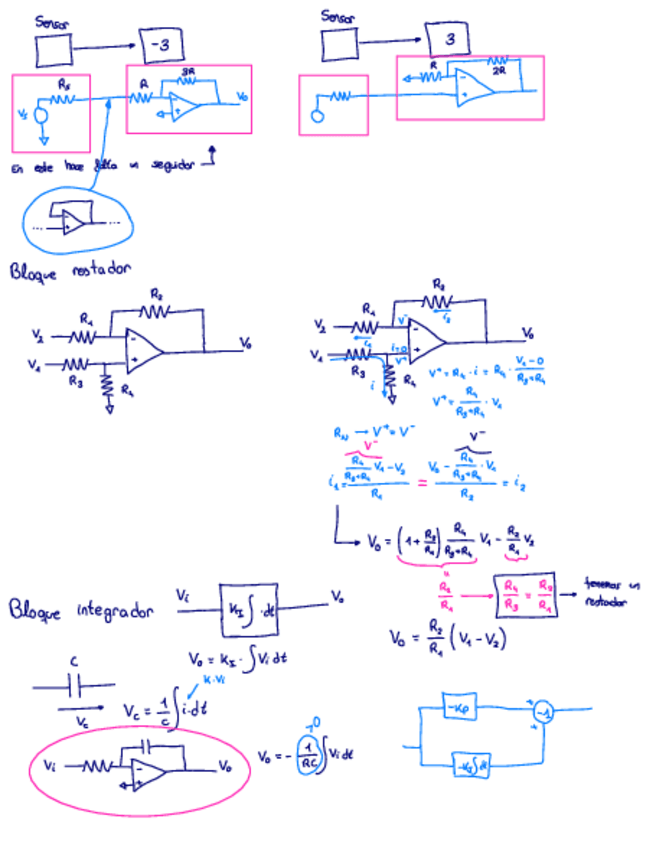 Sensor
-3
Rs
R
3R
Vs
-
+
Vo
En este hace falta un seguidor
-
+
Sensor
3
R
2R
-
+
Bloque restador
R2
R1
V2
-
Vo
V1
+
R3
R4
R2
R1
i2
V2
V-
-
Vo
i1
i=0
V1
+
V+
R3
i
R4
V+ = R4 · i = R4 · (V1 - 0)/(R3+R4)
V+ = R4/(R3+R4) · V1
RN → V+ = V-
V-
V-
i1 = (R4/(R3+R4) V1 - V2)/R1 = (Vo - R4/(R3+R4) · V1)/R2 = i2
Vo = (1 + R2/R1) R4/(R3+R4) V1 - R2/R1 V2
R2/R1 → R4/R3 = R2/R1 → tenemos un
restador
Vo = R2/R1 (V1 - V2)
Bloque integrador
Vi
kI ∫ · dt
Vo
Vo = kI · ∫ Vi dt
k · Vi
C
Vc
Vc = 1/C ∫ i · dt
Vi
-
+
Vo
→0
Vo = - 1/RC ∫ Vi dt
-Kp
+
-1
+
-KI∫dt